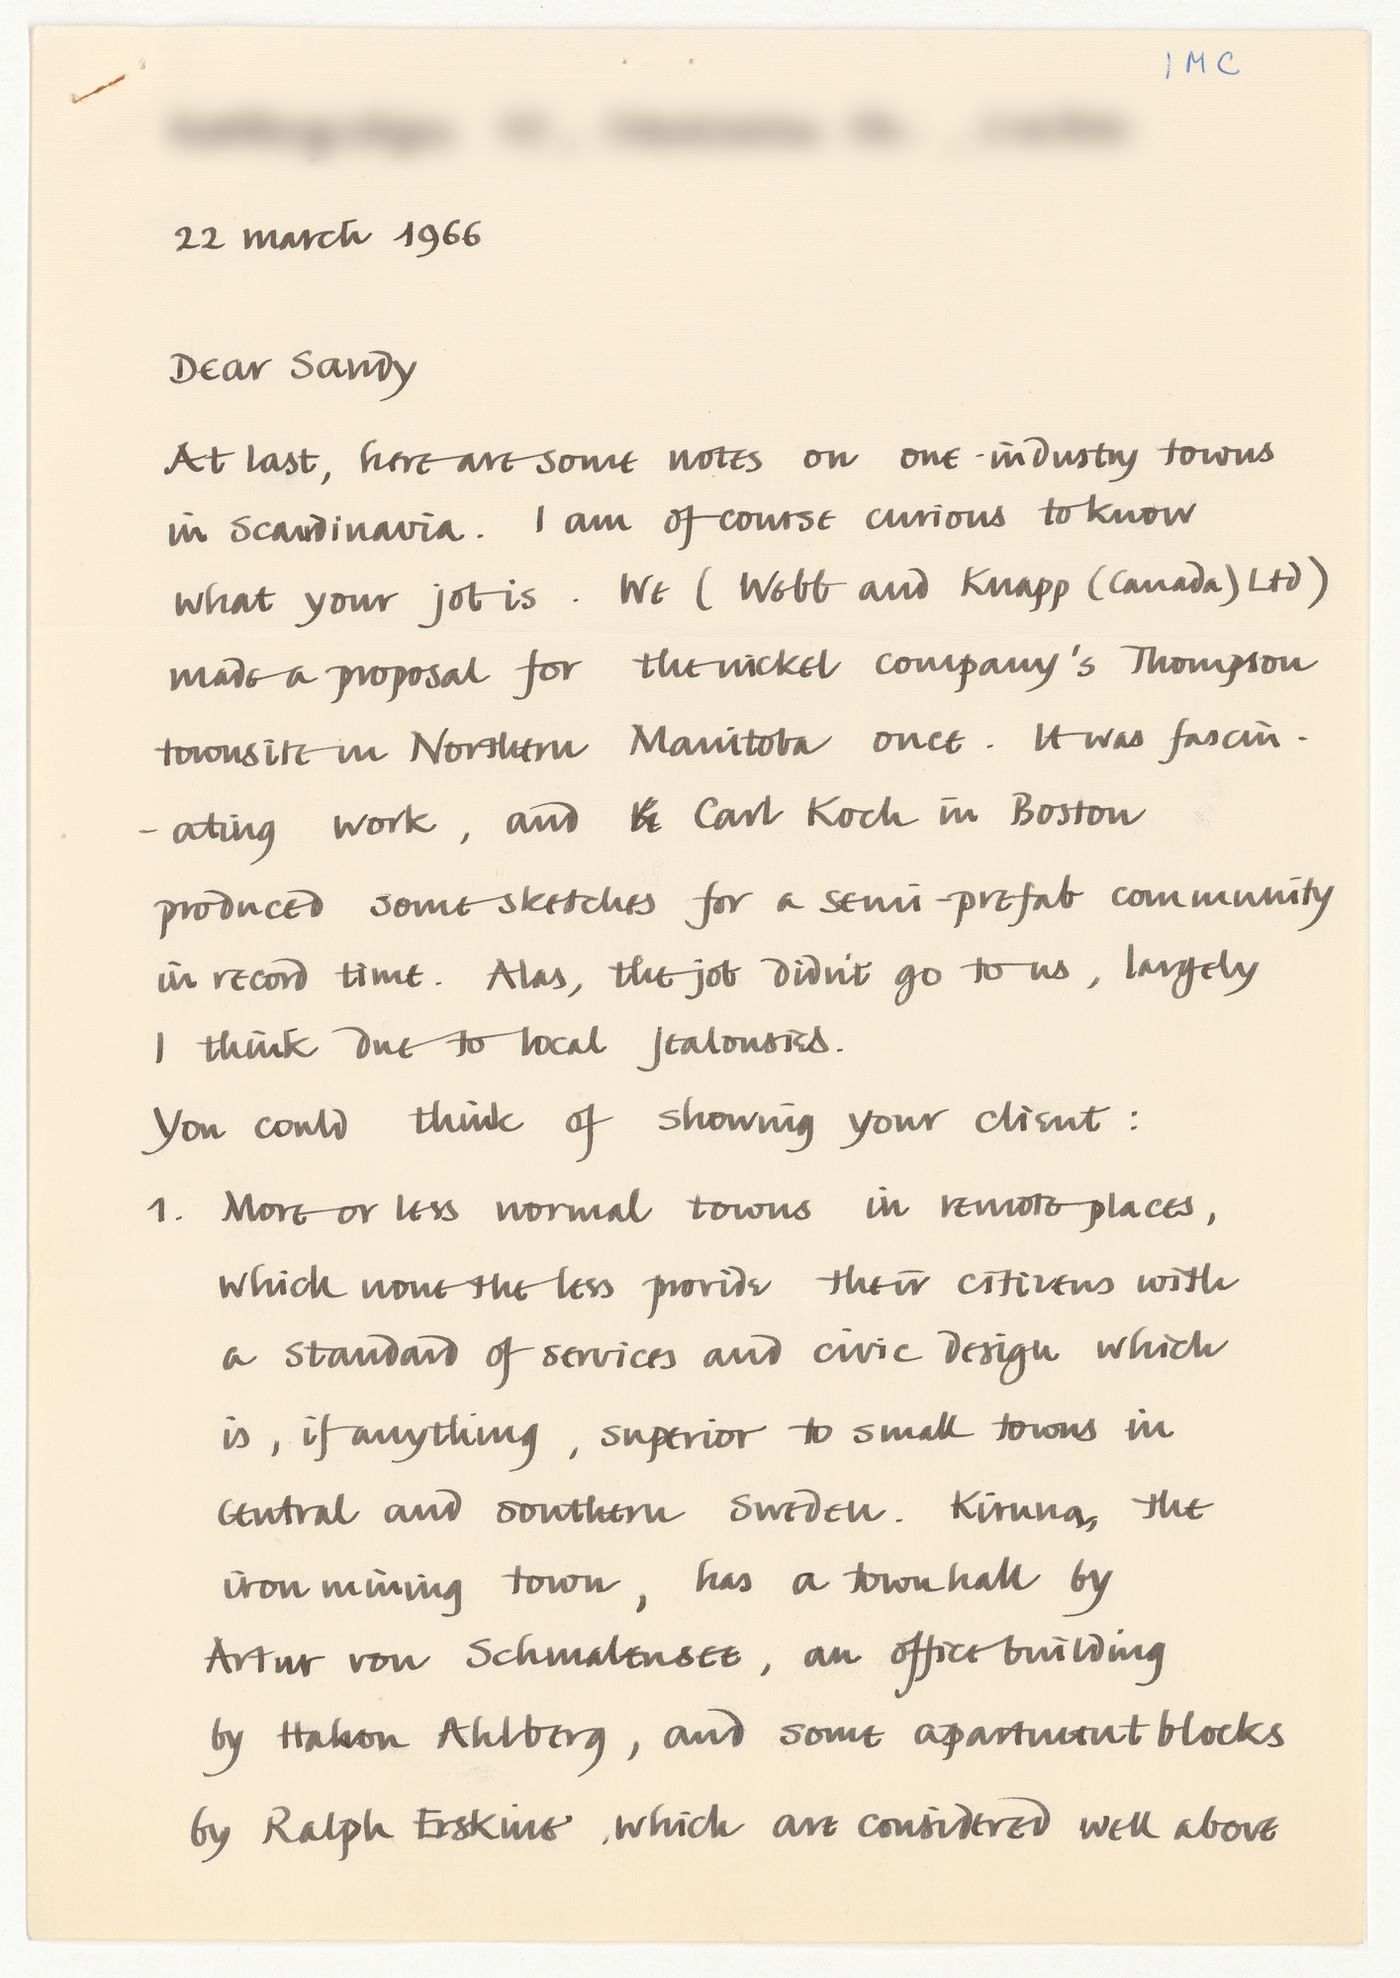 IMC
22 march 1966
Dear Sandy
At last, here are some notes on one-industry towns
in Scandinavia. I am of course curious to know
what your job is. We (Webb and Knapp (Canada) Ltd)
made a proposal for the nickel company's Thompson
townsite in Northern Manitoba once. It was fascin-
-ating work, and Carl Koch in Boston
produced some sketches for a semi-prefab community
in record time. Alas, the job didn't go to us, largely
I think due to local jealousies.
You could think of showing your client:
1. More or less normal towns in remote places,
which none the less provide their citizens with
a standard of services and civic design which
is, if anything, superior to small towns in
central and southern Sweden. Kiruna, the
iron mining town, has a townhall by
Artur von Schmalensee, an office building
by Hakon Ahlberg, and some apartment blocks
by Ralph Erskine, which are considered well above